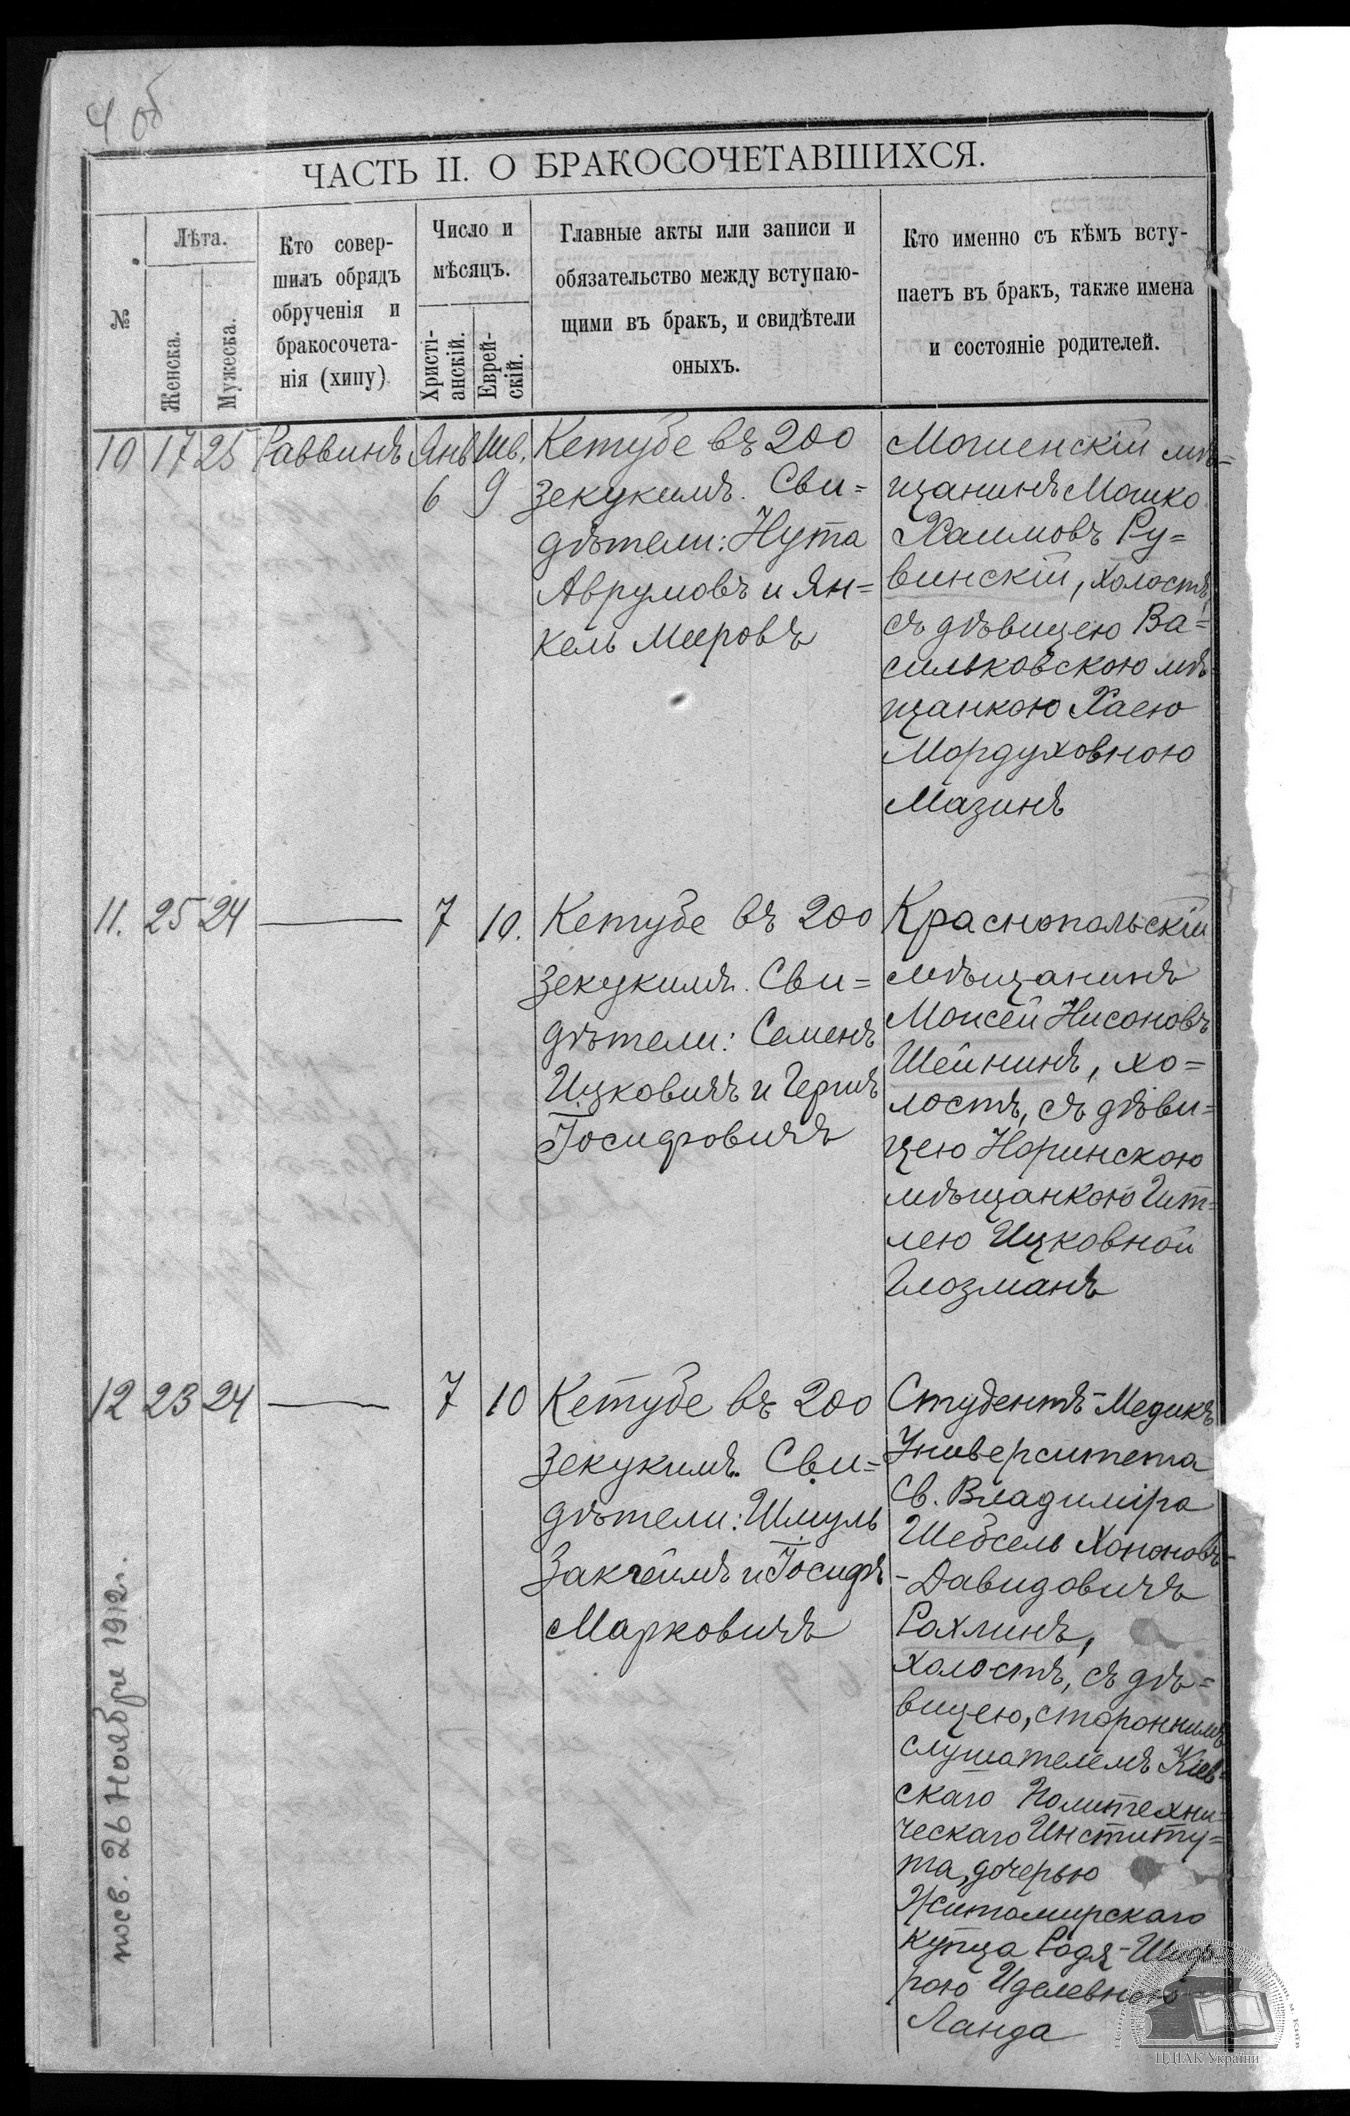 4 об
ЧАСТЬ II. О БРАКОСОЧЕТАВШИХСЯ.
№
Лѣта.
Женска.
Мужеска.
Кто совер-
шилъ обрядъ
обрученія и
бракосочета-
нія (хипу)
Число и
мѣсяцъ.
Христі-
анскій.
Еврей-
скій.
Главные акты или записи и
обязательство между вступаю-
щими въ бракъ, и свидѣтели
оныхъ.
Кто именно съ кѣмъ всту-
паетъ въ бракъ, также имена
и состояніе родителей.
10 17 25 Раввинъ Янв Шв.
6 9
Кетубе въ 200
зекукимъ. Сви=
дѣтели: Нута
Аврумовъ и Ян=
кель Мееровъ
Мошенскій мѣ=
щанинъ Мошко
Хаимовъ Ру=
винскій, холостъ,
съ дѣвицею Ва=
сильковскою мѣ
щанкою Хаею
Мордуховною
Мазинъ
11. 25 24 7 10.
Кетубе въ 200
зекукимъ. Сви=
дѣтели: Семенъ
Ицковичъ и Гершъ
Іосифовичъ
Краснопольскій
мѣщанинъ
Моисей Нисоновъ
Шейнинъ, хо=
лостъ, съ дѣви=
цею Норинскою
мѣщанкою Гит=
лею Ицковной
Глозманъ
12 23 24 7 10
Кетубе въ 200
зекукимъ. Сви=
дѣтели: Шмуль
Закгеймъ и Іосифъ
Марковичъ
Студентъ-Медикъ
Университета
Св. Владиміра
Шебсель Хононовъ-
-Давидовичъ
Рохлинъ,
холостъ, съ дѣ=
вицею, стороннимъ
слушателемъ Кіев=
скаго Политехни-
ческаго Институ=
та, дочерью
Житомирскаго
купца Родя-Шиф-
рою Иделевною
Ланда
посв. 26 Ноября 1912 г.
ЦДІАК України